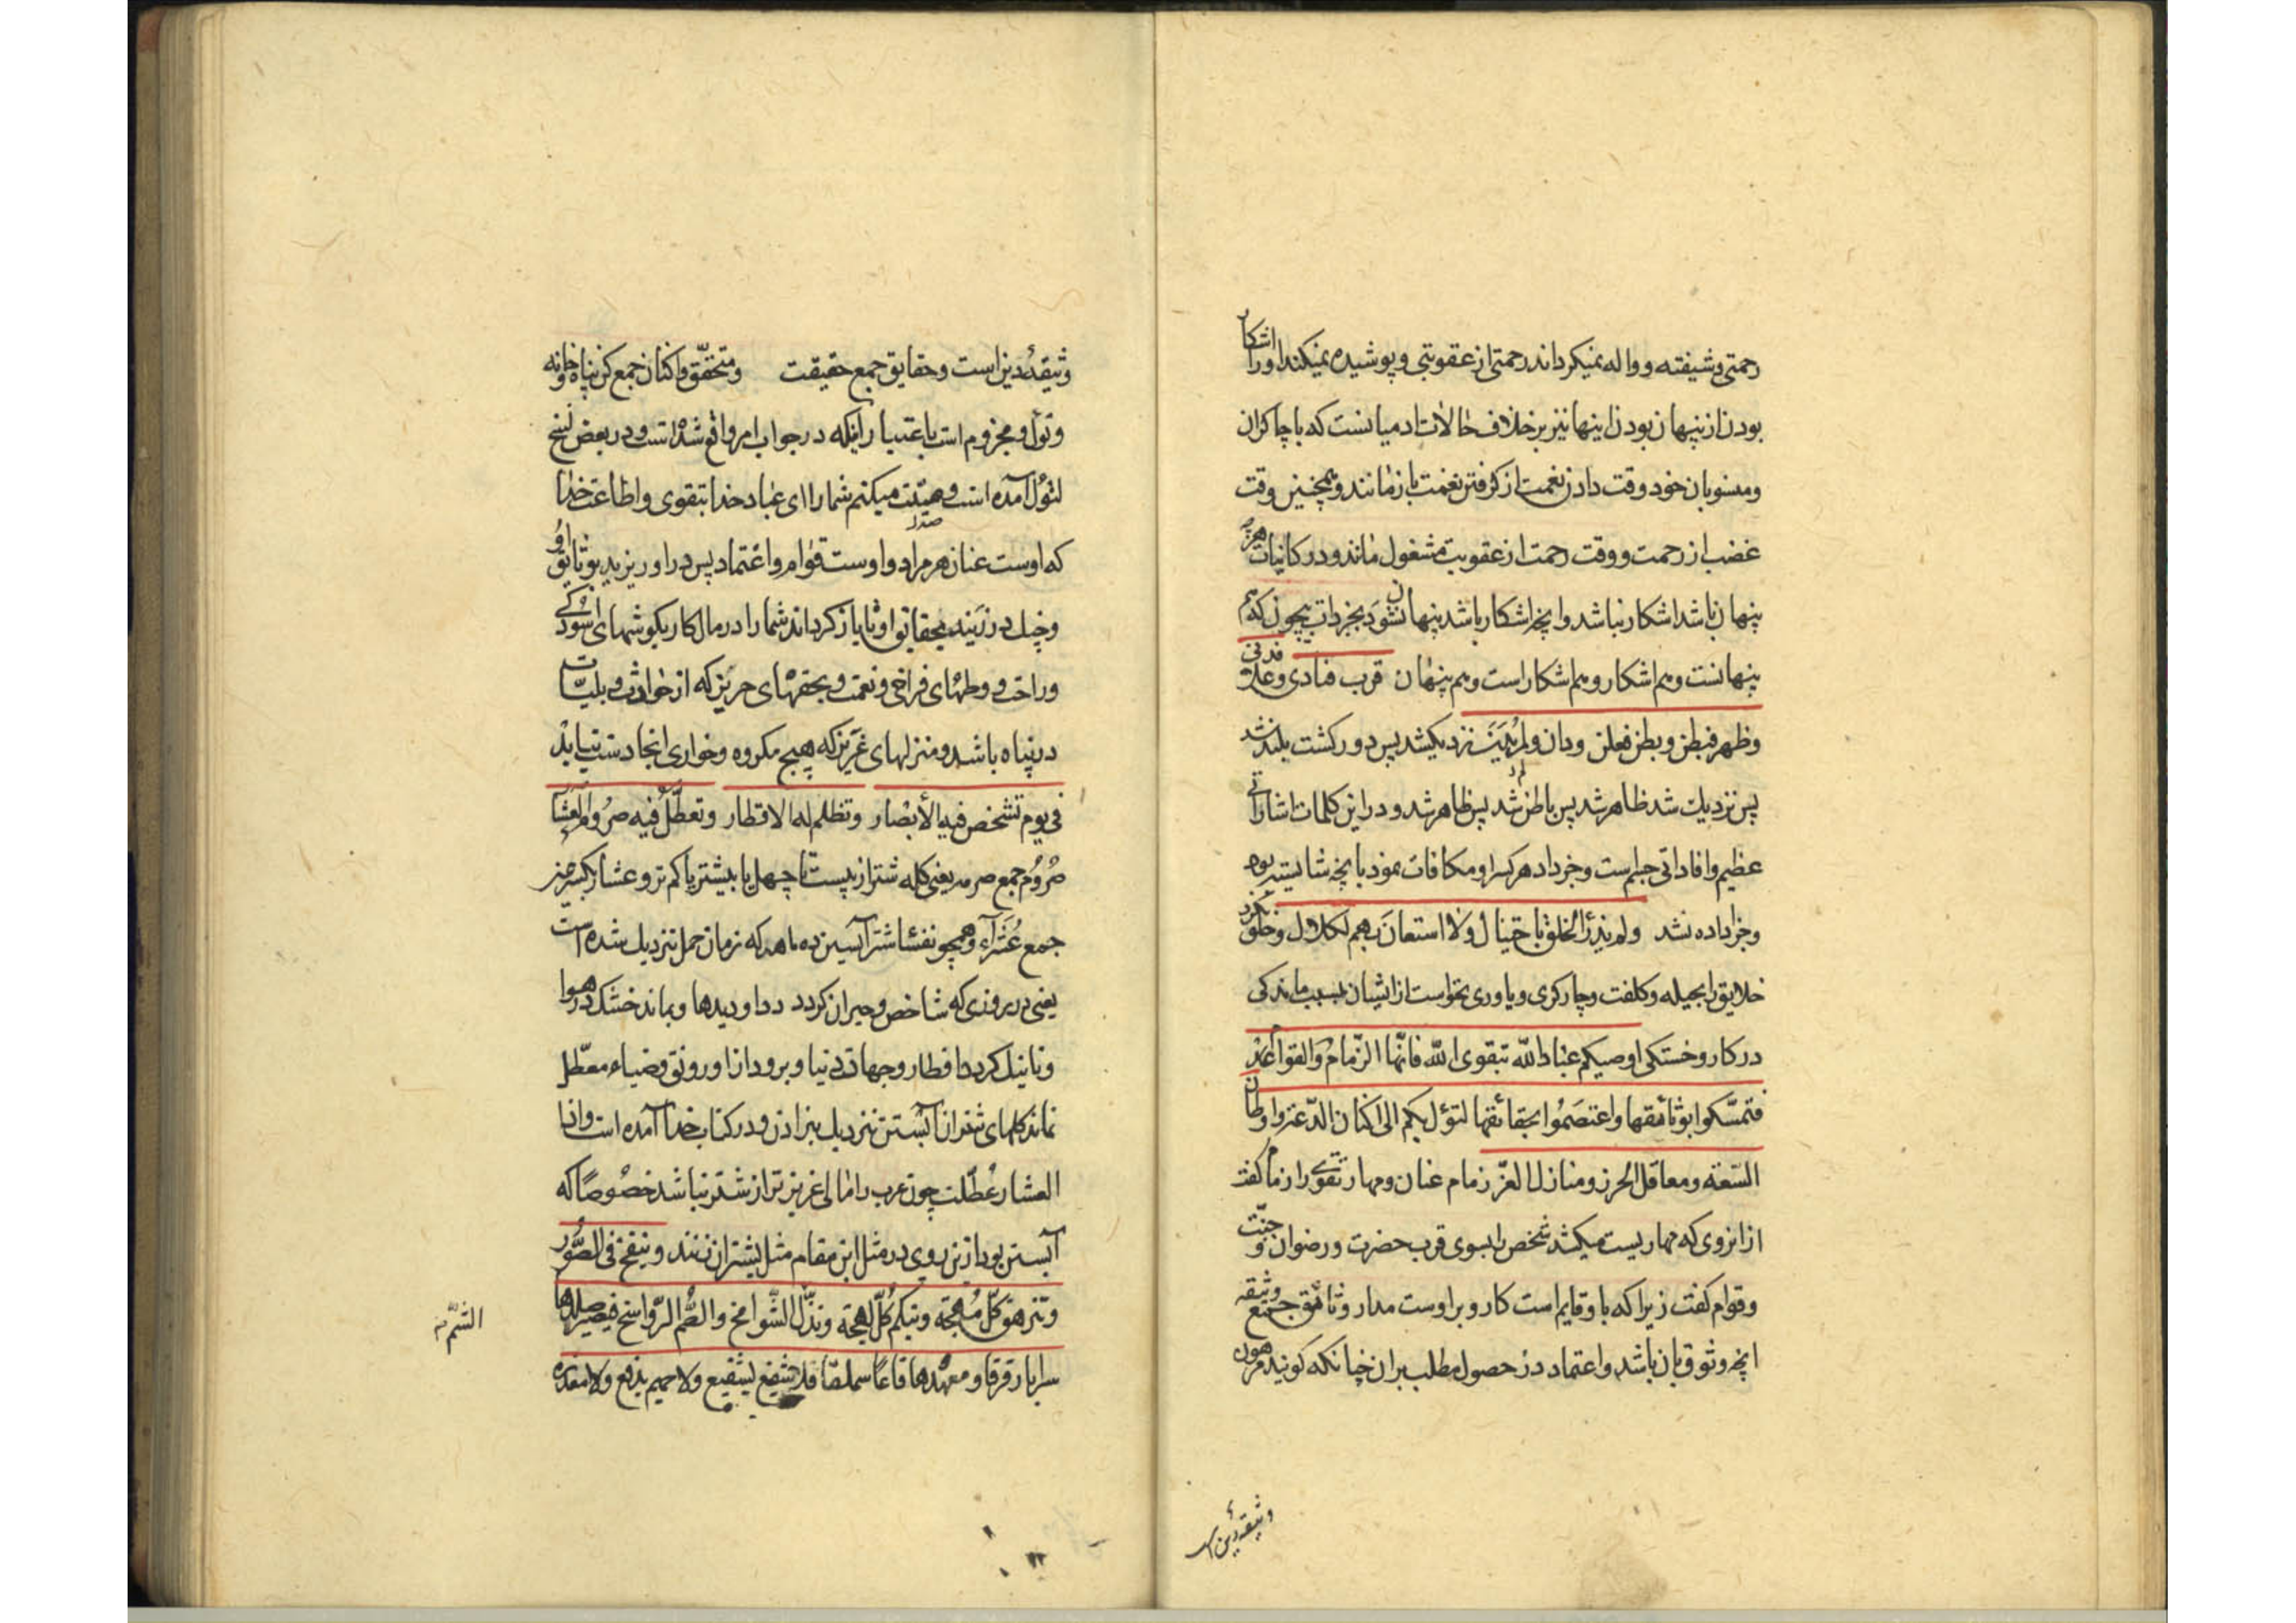 رحمتی و شیفته و واله نمیکرداند رحمتی از عقوبتی و پوشیده نمیکند او را اشکار
بودن از پنهان بودن اینها نیز بر خلاف حالات ادمیانست که با چاکران
ومنسوبان خود وقت دادن نعمت از کرفتن نعمت باز مانند و همچنین وقت
غضب از رحمت و وقت رحمت از عقوبت مشغول مانند و در کانیات هر چیز
پنهان باشد اشکار نباشد و انچه اشکار باشد پنهان نشود بجز ذات بیچون که هم
پنهانست و هم اشکار و هم اشکار است و هم پنهان قرب فنای وعلا فدنی
وظهر فبطن وبطن فعلن ودان ولم یُدَن نزدیکشد پس دور کشت بلند شد
پس نزدیک شد ظاهر شد پس باطن شد پس ظاهر شد و در این کلمات اشاراتی
عظیم و افاداتی جلیم است و جزا داد هر کس را و مکافات نمود بانچه شایسته بود
و جزا داده نشد ولم یذرأ الخلق باحتیال ولا استعان بهم لکلال و خلق نکرد
خلایق را بحیله و کلفت و چارکری و یاوری نخواست از ایشان بسبب ماندکی
در کار و خستکی اوصیکم عباد الله بتقوی الله فانّها الزّمامُ والقوامُ
فتمسّکوا بوثائقها واعتصَمُوا بحقائقها لتؤل بکم الی اکنان الدّعة واوطان
السّعة ومعاقل الحرز ومنازل العزّ زمام عنان و مهار تقوی را زمام کفت
از انروی که مهاریست میکشد شخص را بسوی قرب حضرت و رضوان و جنّت
و قوام کفت زیرا که باو قایم است کار و بر اوست مدار وثائق جمع وثیقه
انچه وثوق بان باشد و اعتماد در حصول مطلب بران چنانکه کویند مرهون
وثیقهٔ دین اس
وثیقهٔ دین است و حقایق جمع حقیقت و متحقّق و اکنان جمع کن پناه و خانه
وتؤل و مجزوم است باعتبار اینکه در جواب امر واقع شده است و در بعض نسخ
لتؤل آمده است وصیّت میکنم شما را ای عباد خدا بتقوی و اطاعت خدا
که اوست عنان هر مراد و اوست قوام و اعتماد پس در اویزید بوثایق او
و چنک در زنید بحقایق او تا باز کرداند شما را در مال کار بکوشهای اسُودکی
و راحت و وطنهای فراخی و نعمت و بحقهای حریز که از حوادث و بلیّات
در پناه باشد و منزلهای عَزیز که هیچ مکروه و خواری انجا دست نیابد
فی یوم تشخص فیه الأبصار وتظلم له الاقطار وتعطّل فیه صرُوم العشار
صُرُوم جمع صرمه یعنی کله شتر از بیست تا چهل یا بیشتر یا کمتر و عشار بکسر عین
جمع عُشَراء و همچو نفسا شتر آبستن ده ماهه که زمان حمل نزدیک شده است
یعنی در روزی که شاخص و حیران کردد در او دیدها و بماند خشک در هوا
و تاریک کردد اقطار و جهات دنیا و برود از او رونق و ضیاء معطّل
ماند کلهای شتران آبستن نزدیک بزادن و در کتاب خدا آمده است واذا
العشار عُطّلت چون عرب را مالی عزیز تر از شتر نباشد خصُوصاً که
آبستن بود از این روی در مثل این مقام مثل بشتران زنند وینفخ فی الصُّور
وتزهق کلّ مُهجة وتبکم کُلّ لهجة وتذلّ الشّوامخ والصُّم الرّواسخ فیصیر صلدها
سرابا رقرقا ومعهدها قاعاً سملقا فلا شفیع یشفع ولا حمیم یدفع ولا معذرة
الشّم